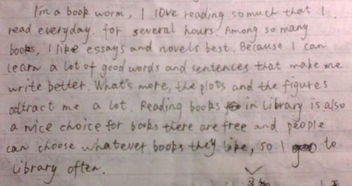 I'm a book worm, I love reading so much that I
read everyday for several hours. Among so many
books, I like essays and novels best. Because I can
learn a lot of good words and sentences that make me
write better. What's more, the plots and the figures
attract me a lot. Reading books in library is also
a nice choice for books there are free and people
can choose whatever books they like, so I go to
library often.